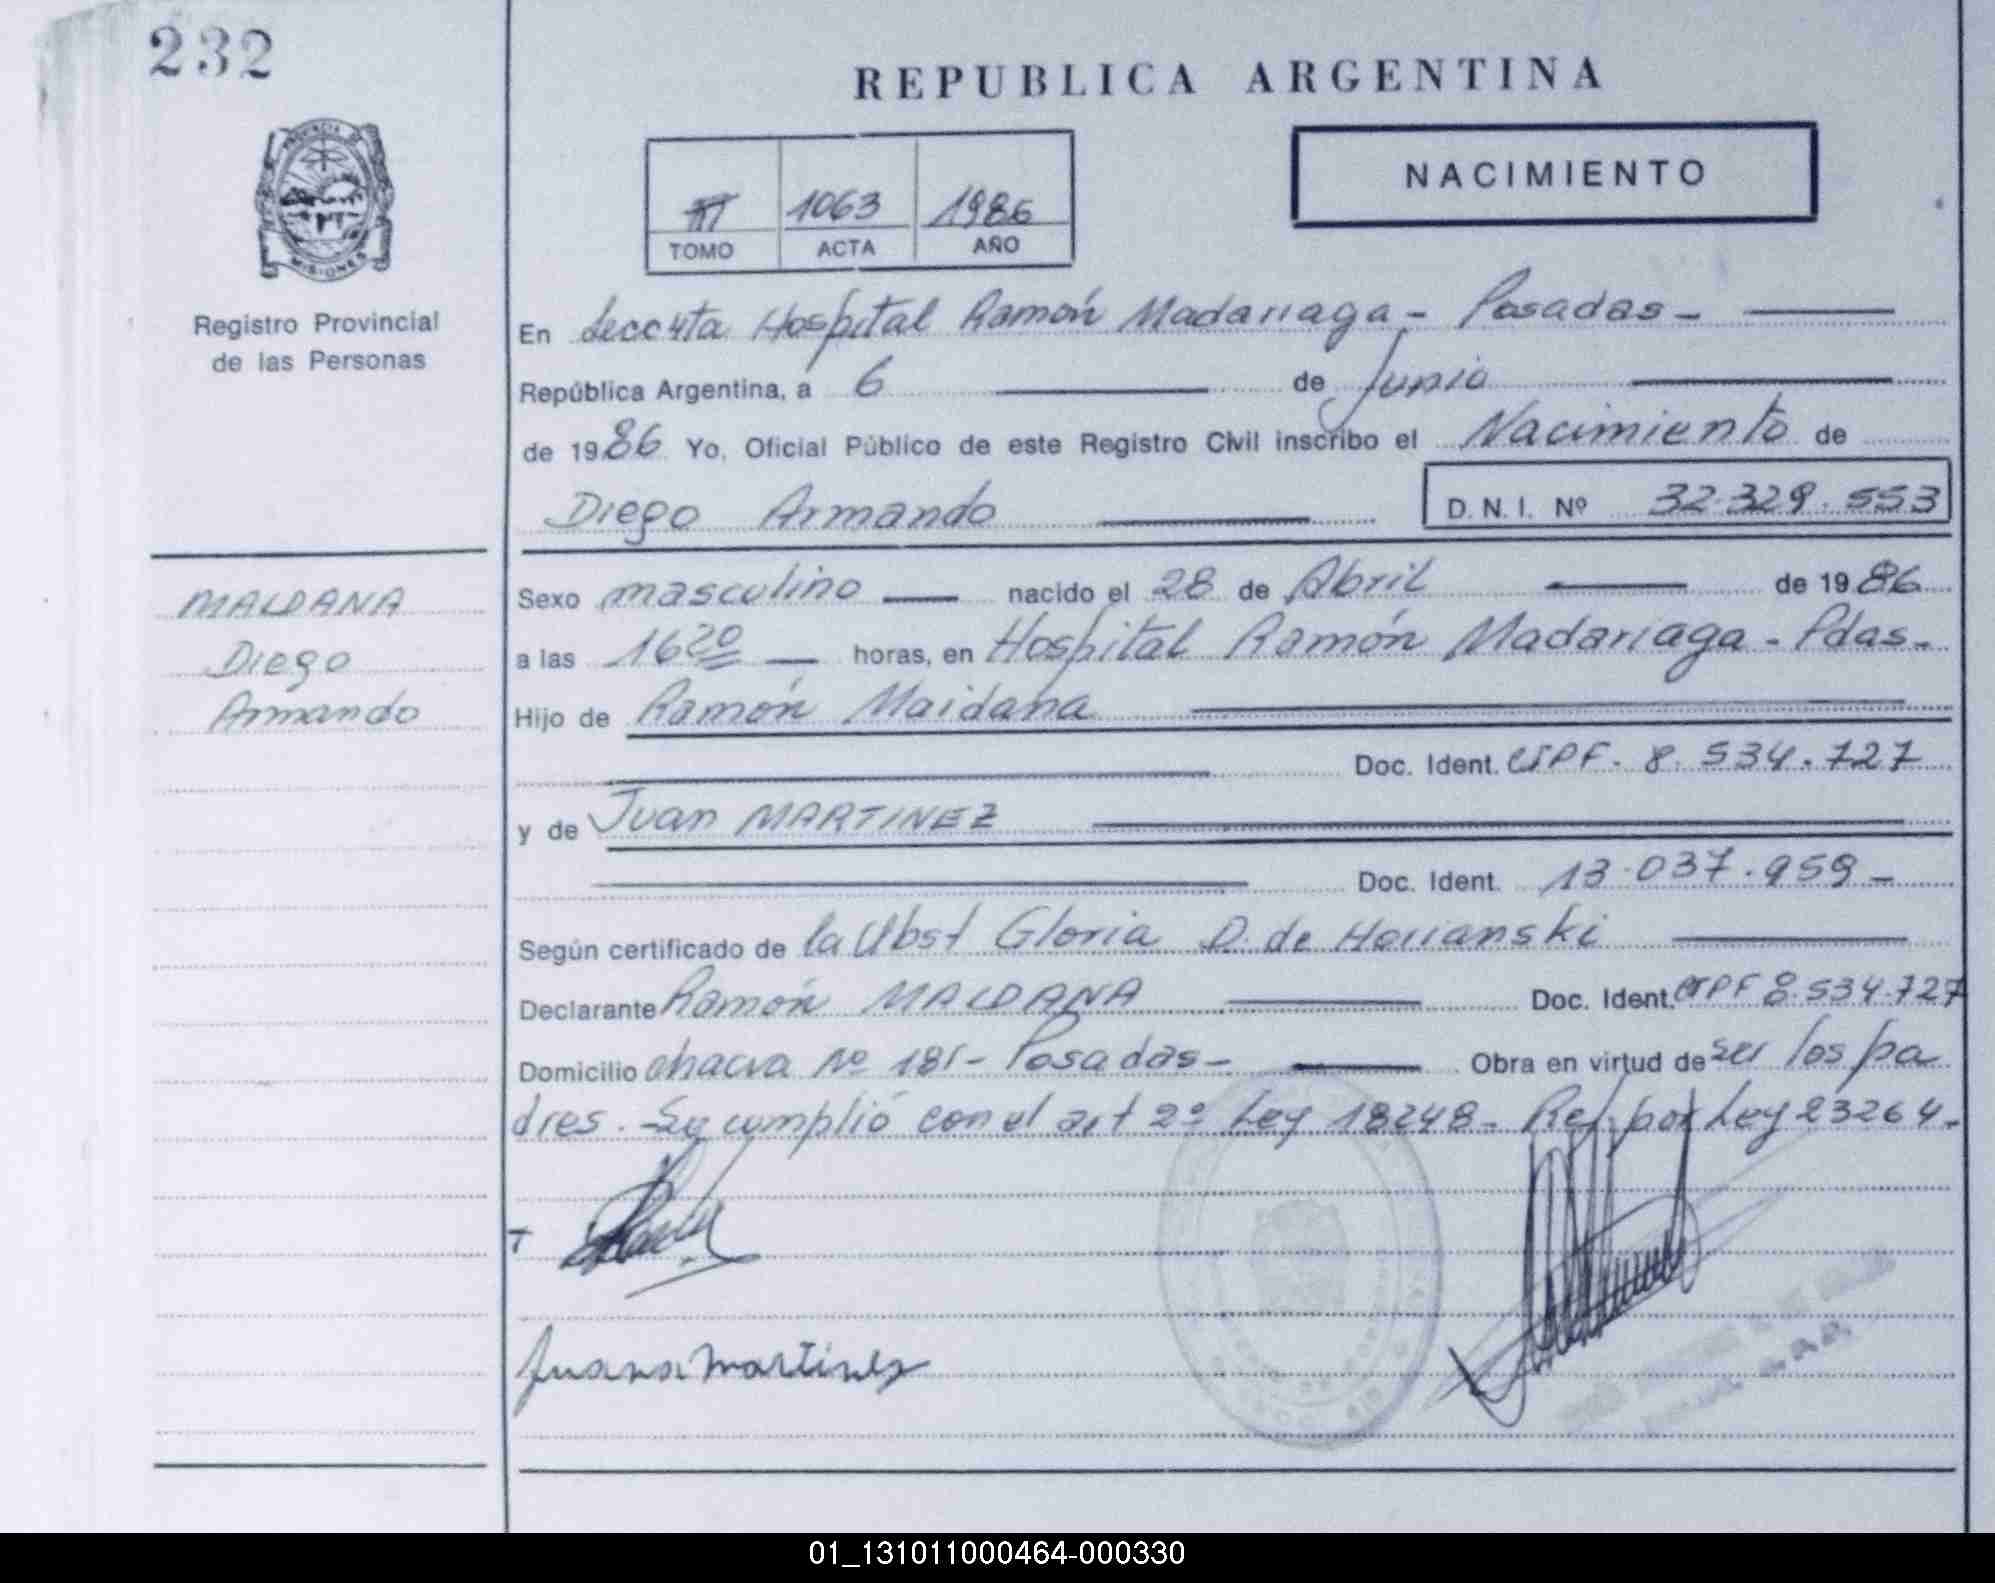 232
REPUBLICA ARGENTINA
PROVINCIA DE
MISIONES
Registro Provincial
de las Personas
1063 1986
TOMO ACTA AÑO
NACIMIENTO
En Secc 4ta Hospital Ramón Madariaga - Posadas -
República Argentina, a 6 de Junio
de 1986 Yo, Oficial Público de este Registro Civil inscribo el Nacimiento de
Diego Armando D. N. I. Nº 32.329.553
MAIDANA
Diego
Armando
Sexo masculino nacido el 28 de Abril de 1986
a las 16²⁰ horas, en Hospital Ramón Madariaga - Pdas -
Hijo de Ramón Maidana
Doc. Ident. CIPF. 8.534.727
y de Juan MARTINEZ
Doc. Ident. 13.037.959 -
Según certificado de la Obst Gloria D. de
Declarante Ramón MAIDANA Doc. Ident. CIPF 8.534.727
Domicilio chacra Nº 181 - Posadas - Obra en virtud de ser los pa
dres. - Se cumplió con el art 2º Ley 18248 - Ref. por Ley 23264 -
Juana Martines
01_131011000464-000330